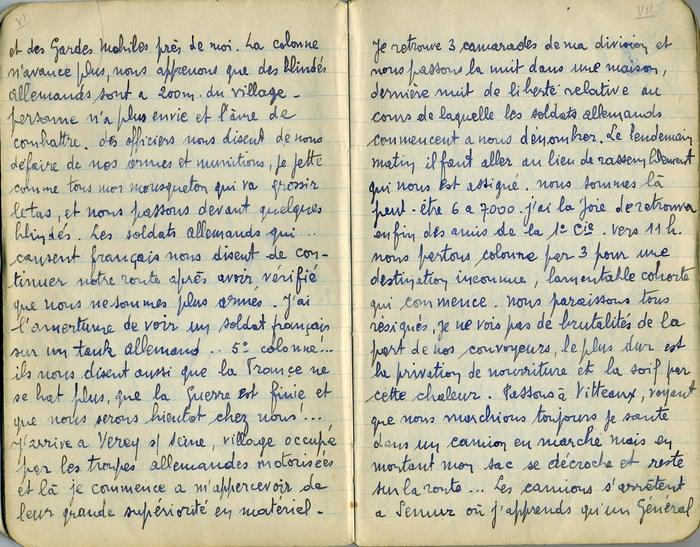 VI
et des Gardes Mobiles près de moi. La colonne
n'avance plus, nous apprenons que des blindés
allemands sont a 200m. du village -
personne n'a plus envie et l'âme de
combattre. des officiers nous disent de nous
défaire de nos armes et munitions, je jette
comme tous mon mousqueton qui va grossir
le tas, et nous passons devant quelques
blindés. Les soldats allemands qui ..
causent français nous disent de con-
tinuer notre route après avoir vérifié
que nous ne sommes plus armés. J'ai
l'amertume de voir un soldat français
sur un tank allemand .. 5e colonne!...
ils nous disent aussi que la France ne
se bat plus, que la Guerre est finie et
que nous serons bientot chez nous!...
J'arrive a Verey s/ Seine, village occupé
par les troupes allemandes motorisées
et là je commence a m'appercevoir de
leur grande supériorité en matériel -
VII
Je retrouve 3 camarades de ma division et
nous passons la nuit dans une maison,
dernière nuit de liberté relative au
cours de laquelle les soldats allemands
commencent a nous dénombrer. Le lendemain
matin il faut aller au lieu de rassemblement
qui nous est assigné. nous sommes là
peut-être 6 a 7000. j'ai la Joie de retrouver
enfin des amis de la 1e Cie. vers 11 h.
nous partons colonne par 3 pour une
destination inconnue, lamentable cohorte
qui commence. nous paraissons tous
résignés, je ne vois pas de brutalités de la
part de nos convoyeurs, le plus dur est
la privation de nourriture et la soif par
cette chaleur. Passons à Vitteaux, voyant
que nous marchions toujours je saute
dans un camion en marche mais en
montant mon sac se décroche et reste
sur la route... Les camions s'arrêtent
a Semur où j'apprends qu'un Général